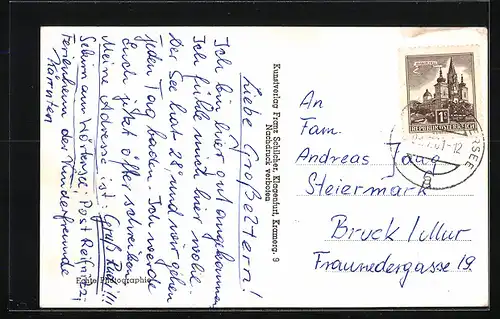 Liebe Großeltern!
Ich bin hier gut angekommen
Ich fühle mich hier wohl.
Der See hat 28°, und wir gehen
jeden Tag baden. Ich werde
Euch jetzt öfter schreiben
Meine Adresse ist: Gruß
Ferienheim der Kinderfreunde
Sekirn am Wörthersee, Post Reifnitz,
Kärnten
Echte Photographie
Kunstverlag Franz Schilcher, Klagenfurt, Kramerg. 9
Nachdruck verboten
An
Fam.
Andreas Jaug
Steiermark
Bruck/Mur
Fraunedergasse 19.
REPUBLIK ÖSTERREICH